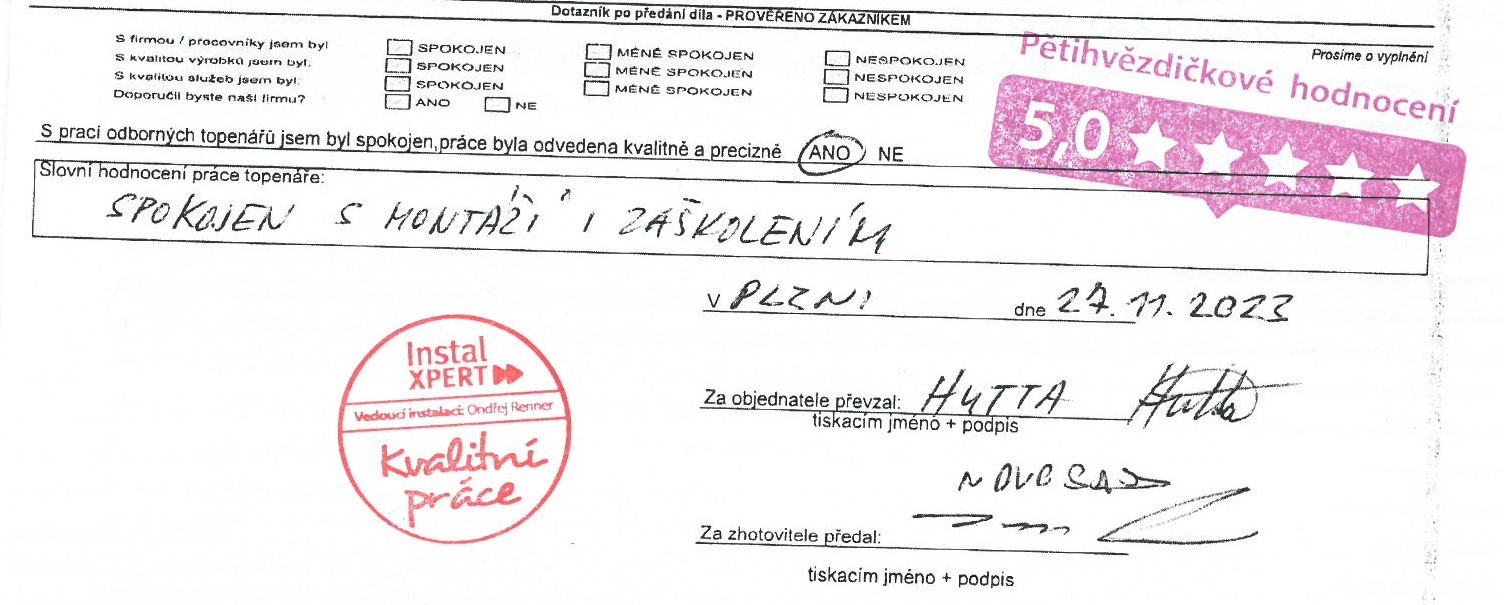 Dotazník po předání díla - PROVĚŘENO ZÁKAZNÍKEM
Prosíme o vyplnění
S firmou / pracovníky jsem byl SPOKOJEN MÉNĚ SPOKOJEN NESPOKOJEN
S kvalitou výrobků jsem byl: SPOKOJEN MÉNĚ SPOKOJEN NESPOKOJEN
S kvalitou služeb jsem byl: SPOKOJEN MÉNĚ SPOKOJEN NESPOKOJEN
Doporučil byste naši firmu? ANO NE
Pětihvězdičkové hodnocení
5,0
S prací odborných topenářů jsem byl spokojen,práce byla odvedena kvalitně a precizně ANO NE
Slovní hodnocení práce topenáře:
SPOKOJEN S MONTÁŽÍ I ZAŠKOLENÍM
v PLZNI dne 27.11.2023
Instal
XPERT
Vedoucí instalací: Ondřej Renner
Kvalitní
práce
Za objednatele převzal: HUTTA Hutta
tiskacím jméno + podpis
NOVOSAD
Za zhotovitele předal:
tiskacím jméno + podpis